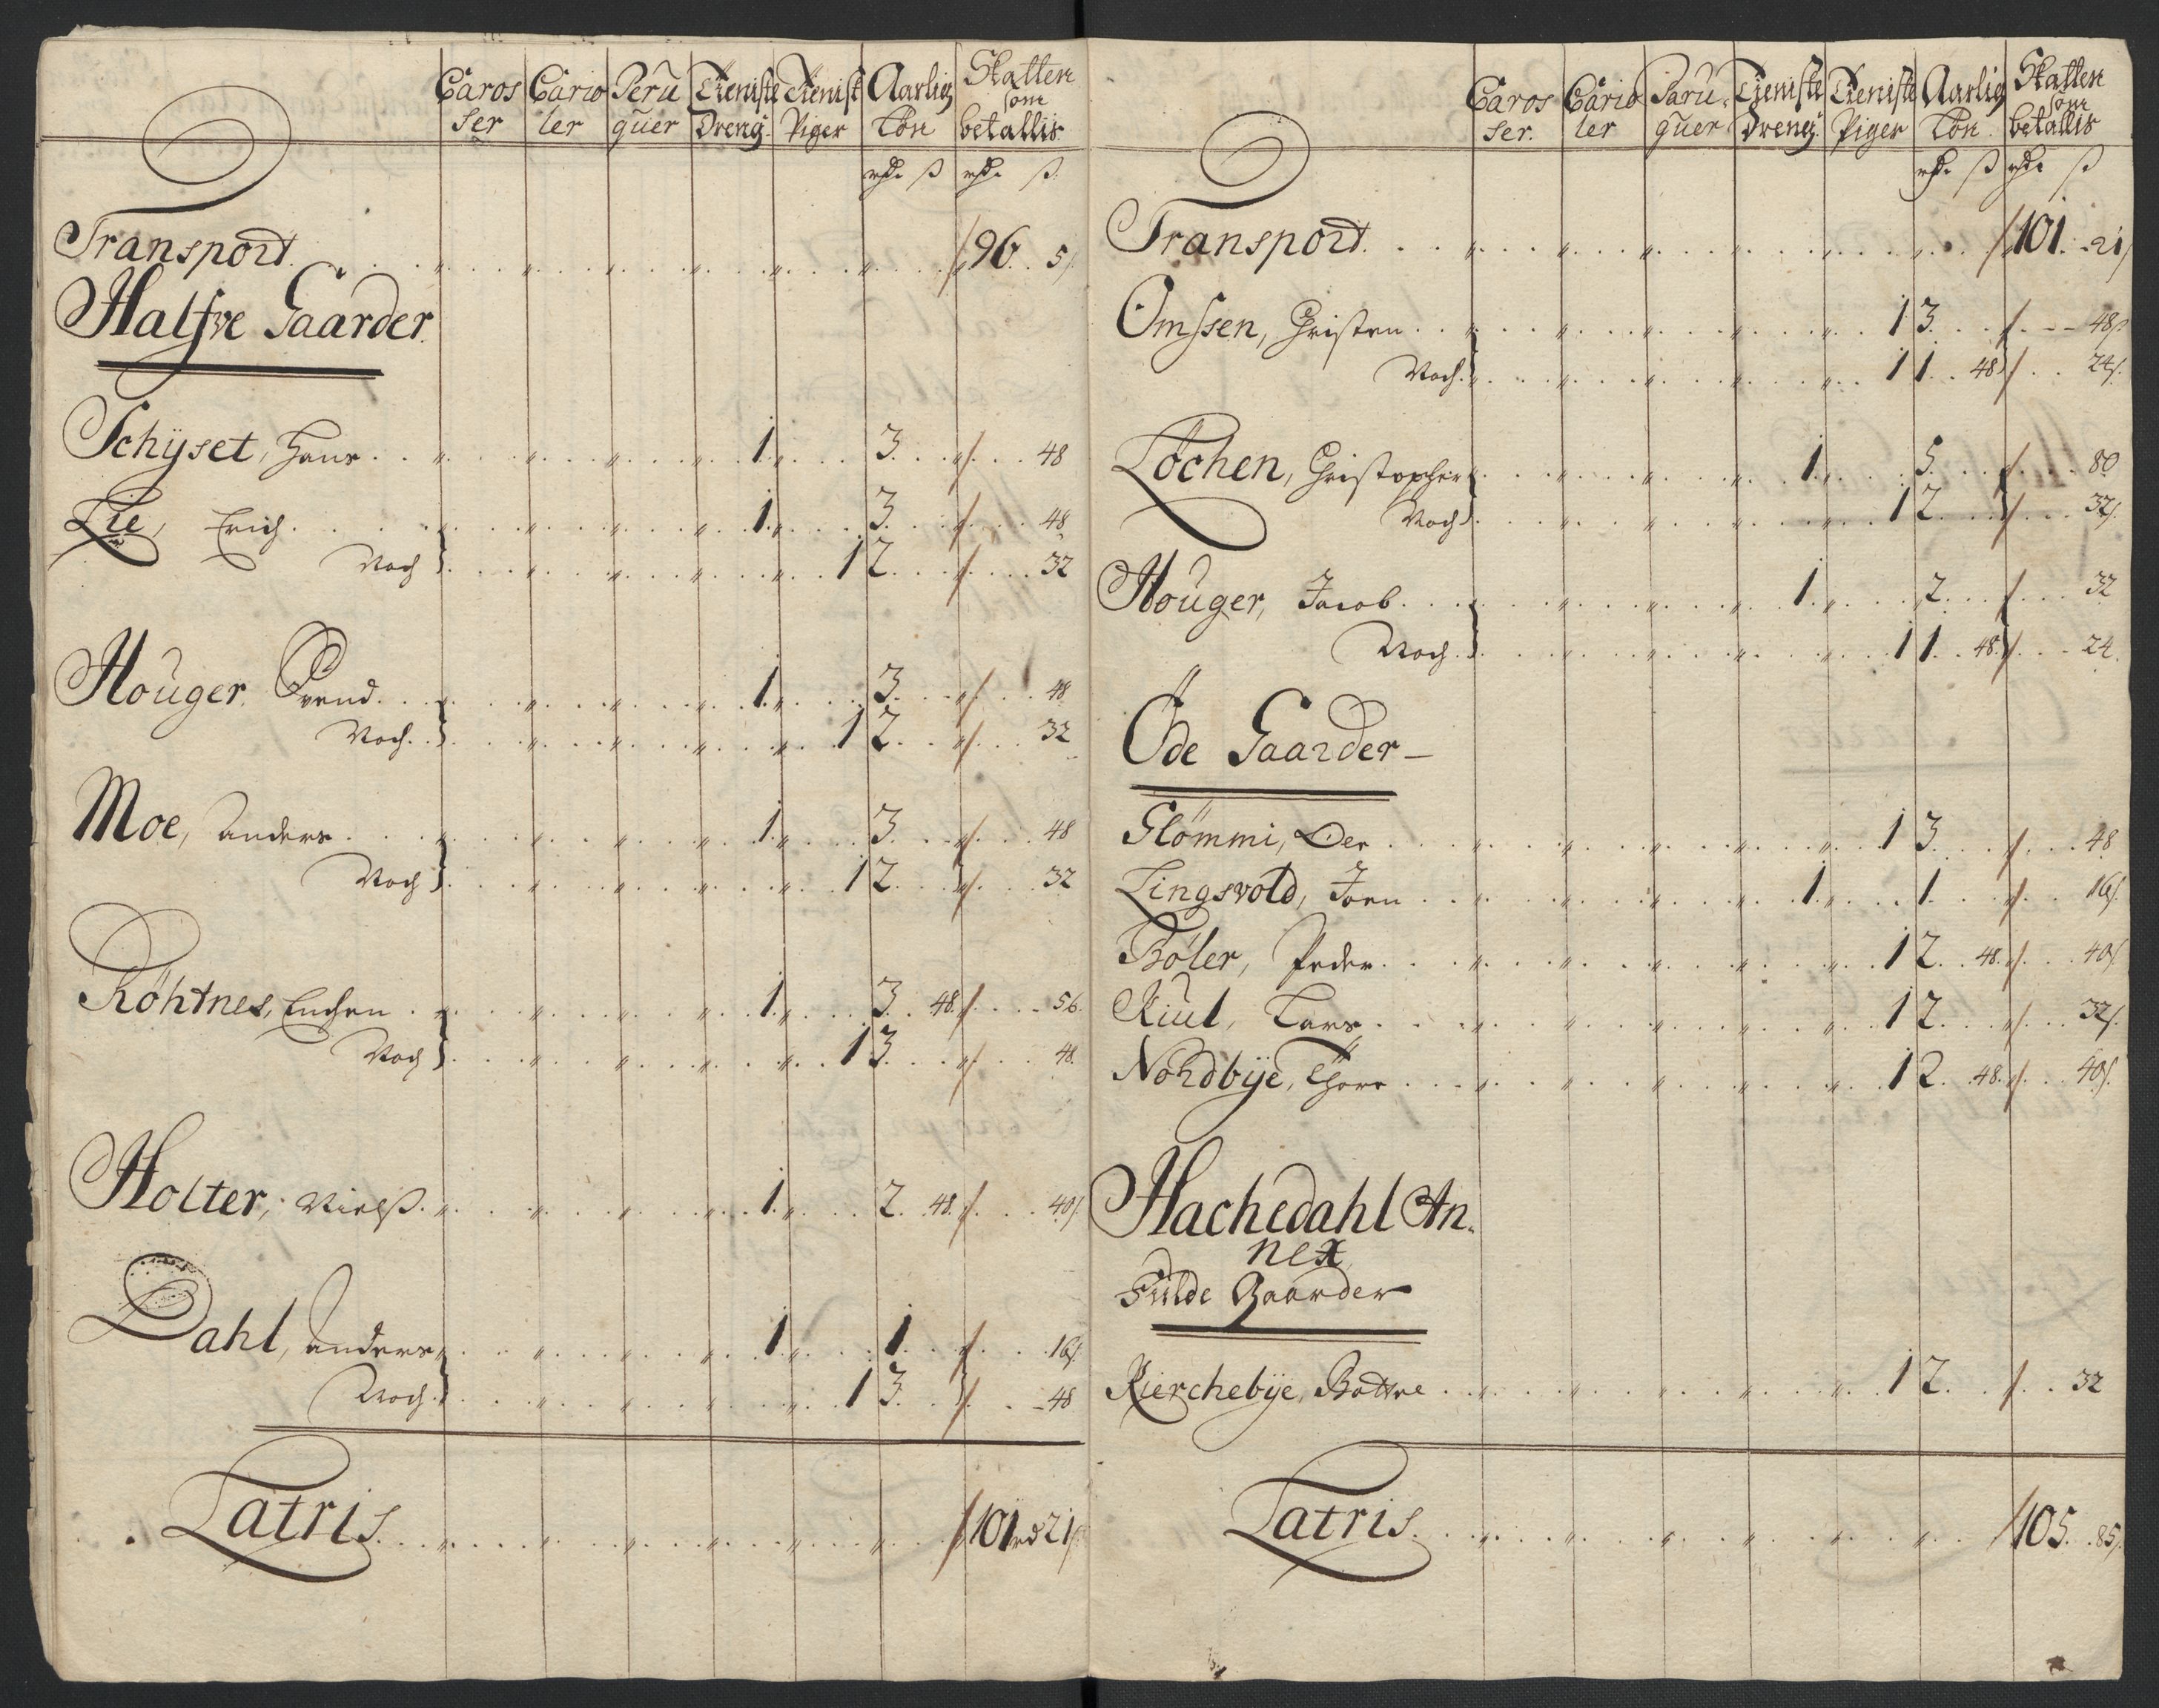 Caros Cario Peru Tieniste Tienist Aarlig Skatten
ser ler quer Dreng. Piger Lön som betallis
rdr ß rdr ß
Transport. 96. 5
Halfve Gaarder.
Schÿset, Hans 1 3 48
Lie, Erich 1 3 48
Noch 1 2 32
Houger, Svend 1 3 48
Noch 1 2 32
Moe, Anders 1 3 48
Noch 1 2 32
Röhtnes, 1 3 48 56
Noch 1 3 48
Holter, Nielß 1 2 48 40
Dahl, Anders 1 1 16
Noch 1 3 48
Latris 101 rd 21
Caros Cario Paru Tieniste Tieniste Aarlig Skatten
ser. ler quer Dreng. Piger Lön som betallis
rdr ß rdr ß
Transport. 101. 21
Omssen, Christen 1 3 48
Noch 1 1 48 24
Löchen, Christopher 1 5 80
Noch 1 2 32
Houger, Jacob 1 2 32
Noch 1 1 48 24
Öde Gaarder
Glömmi, Der 1 3 48
Lingsvold, Joen 1 1 16
Böler, Peder 1 2 48 40
Kiul, Lars 1 2 32
Nordbÿe, Thore 1 2 48 40
Hachedahl An-
nex
Fulde Gaarder
Kierchebÿe, 1 2 32
Latris 105 85